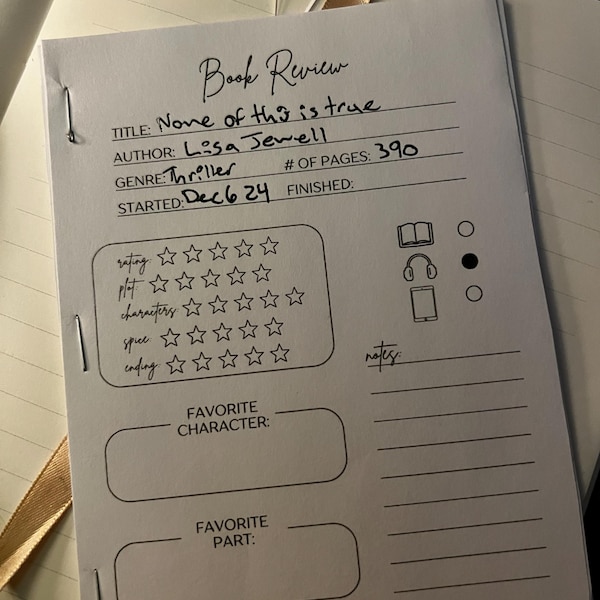 Book Review
TITLE: None of this is true
AUTHOR: Lisa Jewell
GENRE: Thriller # OF PAGES: 390
STARTED: Dec 6 24 FINISHED:
rating:
plot:
characters:
spice:
ending:
notes:
FAVORITE
CHARACTER:
FAVORITE
PART: